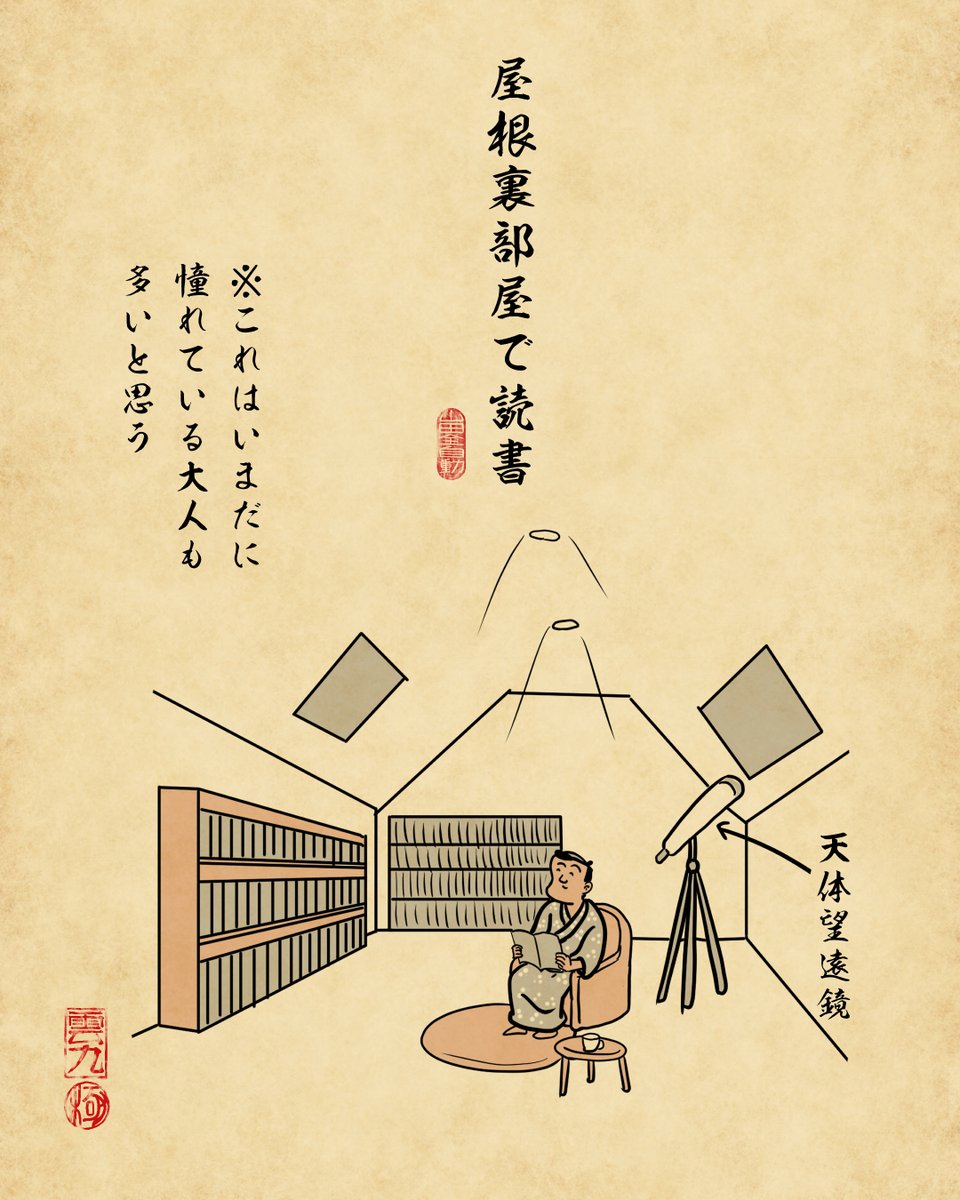 屋根裏部屋で読書
※これはいまだに
憧れている大人も
多いと思う
天体望遠鏡